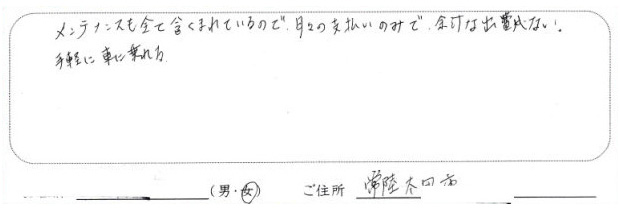 メンテナンスも全て含くまれているので、月々の支払いのみで、余計な出費がない。
手軽に車に乗れる
(男・女) ご住所 常陸太田市